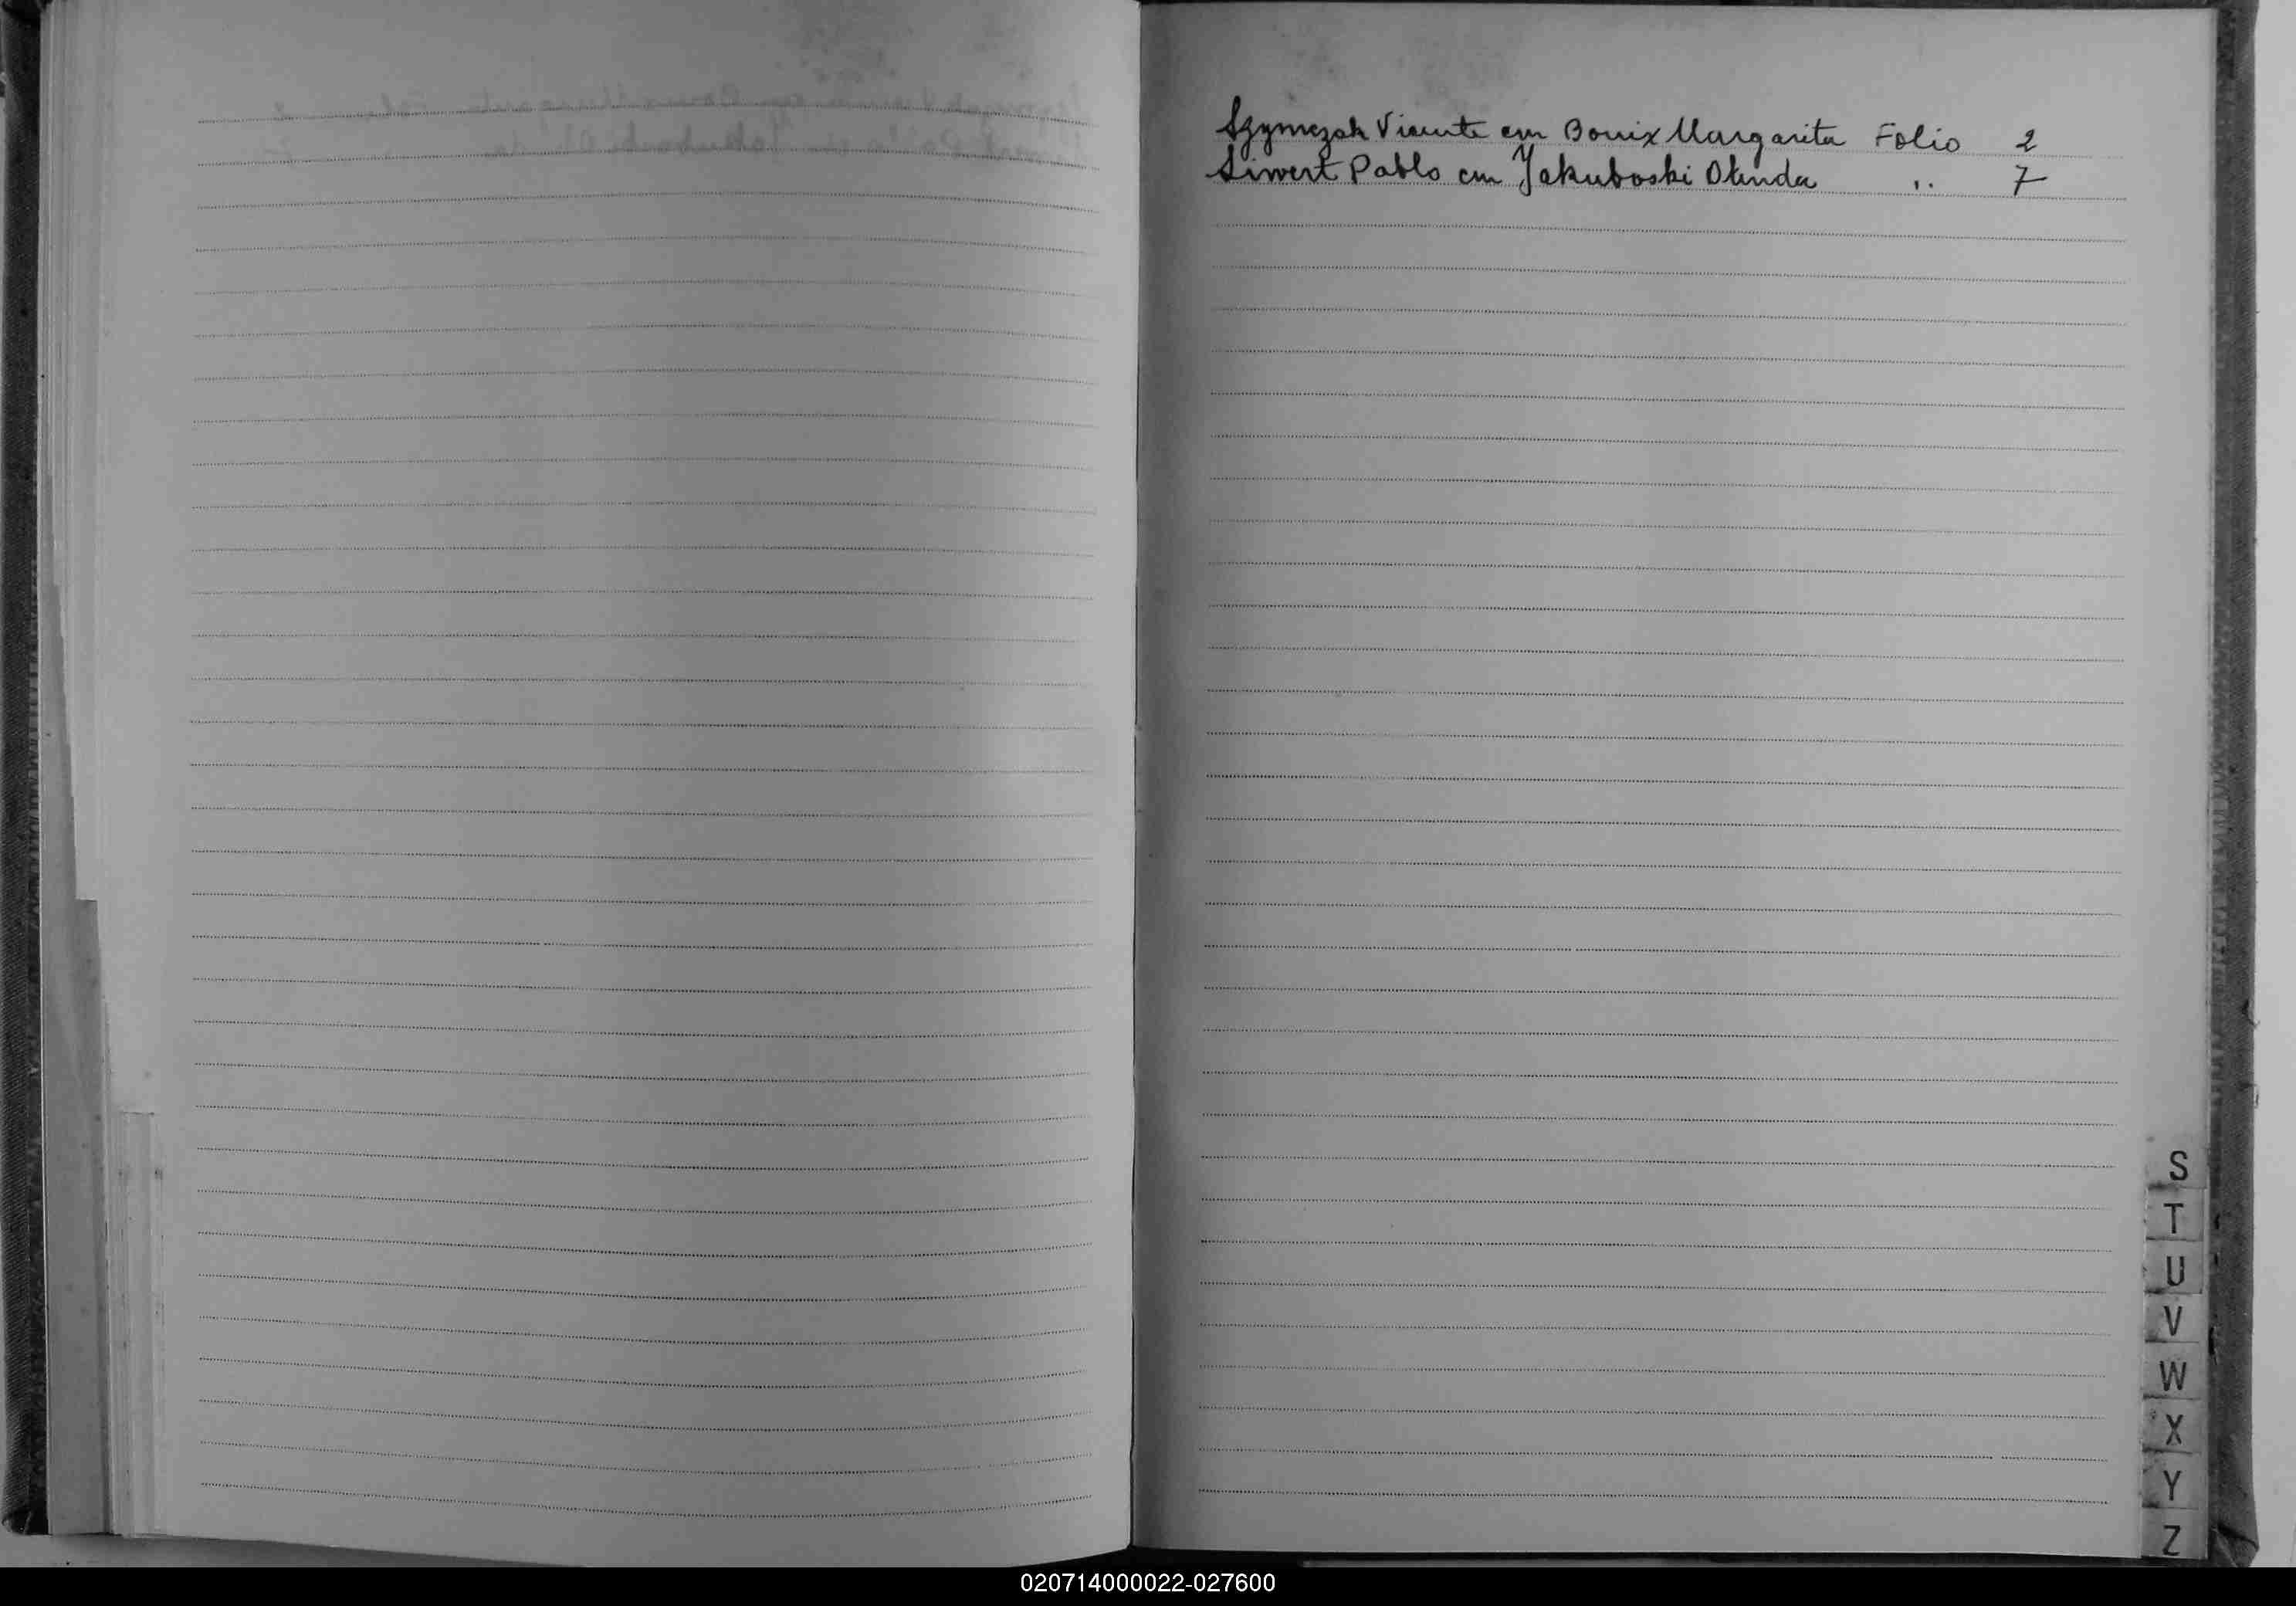 Szymczak Vicente con Bouix Margarita Folio 2
Siwert Pablo con Jakuboski Olinda " 7
S
T
U
V
W
X
Y
Z
020714000022-027600